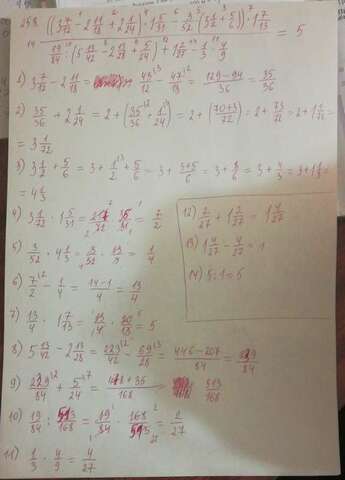 ((3 7/12 - 2 11/18 + 2 1/24) · 1 5/31 - 3/52 · (3 1/2 + 5/6)) · 1 7/13 = 5
19/84 : (5 13/42 - 2 13/28 + 5/24) + 1 2/27 - 1/3 · 4/9
1) 3 7/12 - 2 11/18 = 43/12 - 47/18 = (129-94)/36 = 35/36
2) 35/36 + 2 1/24 = 2 + (35/36 + 1/24) = 2 + (70+3)/72 = 2 + 73/72 = 2 + 1 1/72 =
= 3 1/72
3) 3 1/2 + 5/6 = 3 + 1/2 + 5/6 = 3 + (3+5)/6 = 3 + 8/6 = 3 + 4/3 = 3 + 1 1/3 =
= 4 1/3
4) 3 1/72 · 1 5/31 = 217/72 · 36/31 = 7/2
5) 3/52 · 4 1/3 = 3/52 · 13/3 = 1/4
6) 7/2 - 1/4 = (14-1)/4 = 13/4
7) 13/4 · 1 7/13 = 13/4 · 20/13 = 5
8) 5 13/42 - 2 13/28 = 223/42 - 69/28 = (446-207)/84 = 239/84
9) 239/84 + 5/24 = (478+35)/168 = 513/168
10) 19/84 : 513/168 = 19/84 · 168/513 = 2/27
11) 1/3 · 4/9 = 4/27
12) 2/27 + 1 2/27 = 1 4/27
13) 1 4/27 - 4/27 = 1
14) 5 : 1 = 5